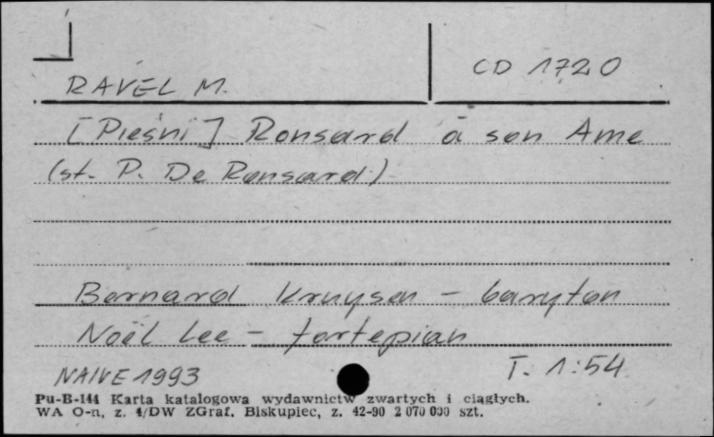 RAVEL M.
CD 1720
[Pieśni] Ronsard à son Ame
(st. P. De Ronsard)
Bernard Kruysen - baryton
Noël Lee - fortepian
NAIVE 1993
T. 1:54
Pu-B-144 Karta katalogowa wydawnictw zwartych i ciągłych.
WA O-n, z. 4/DW ZGraf. Biskupiec, z. 42-90 2 070 000 szt.